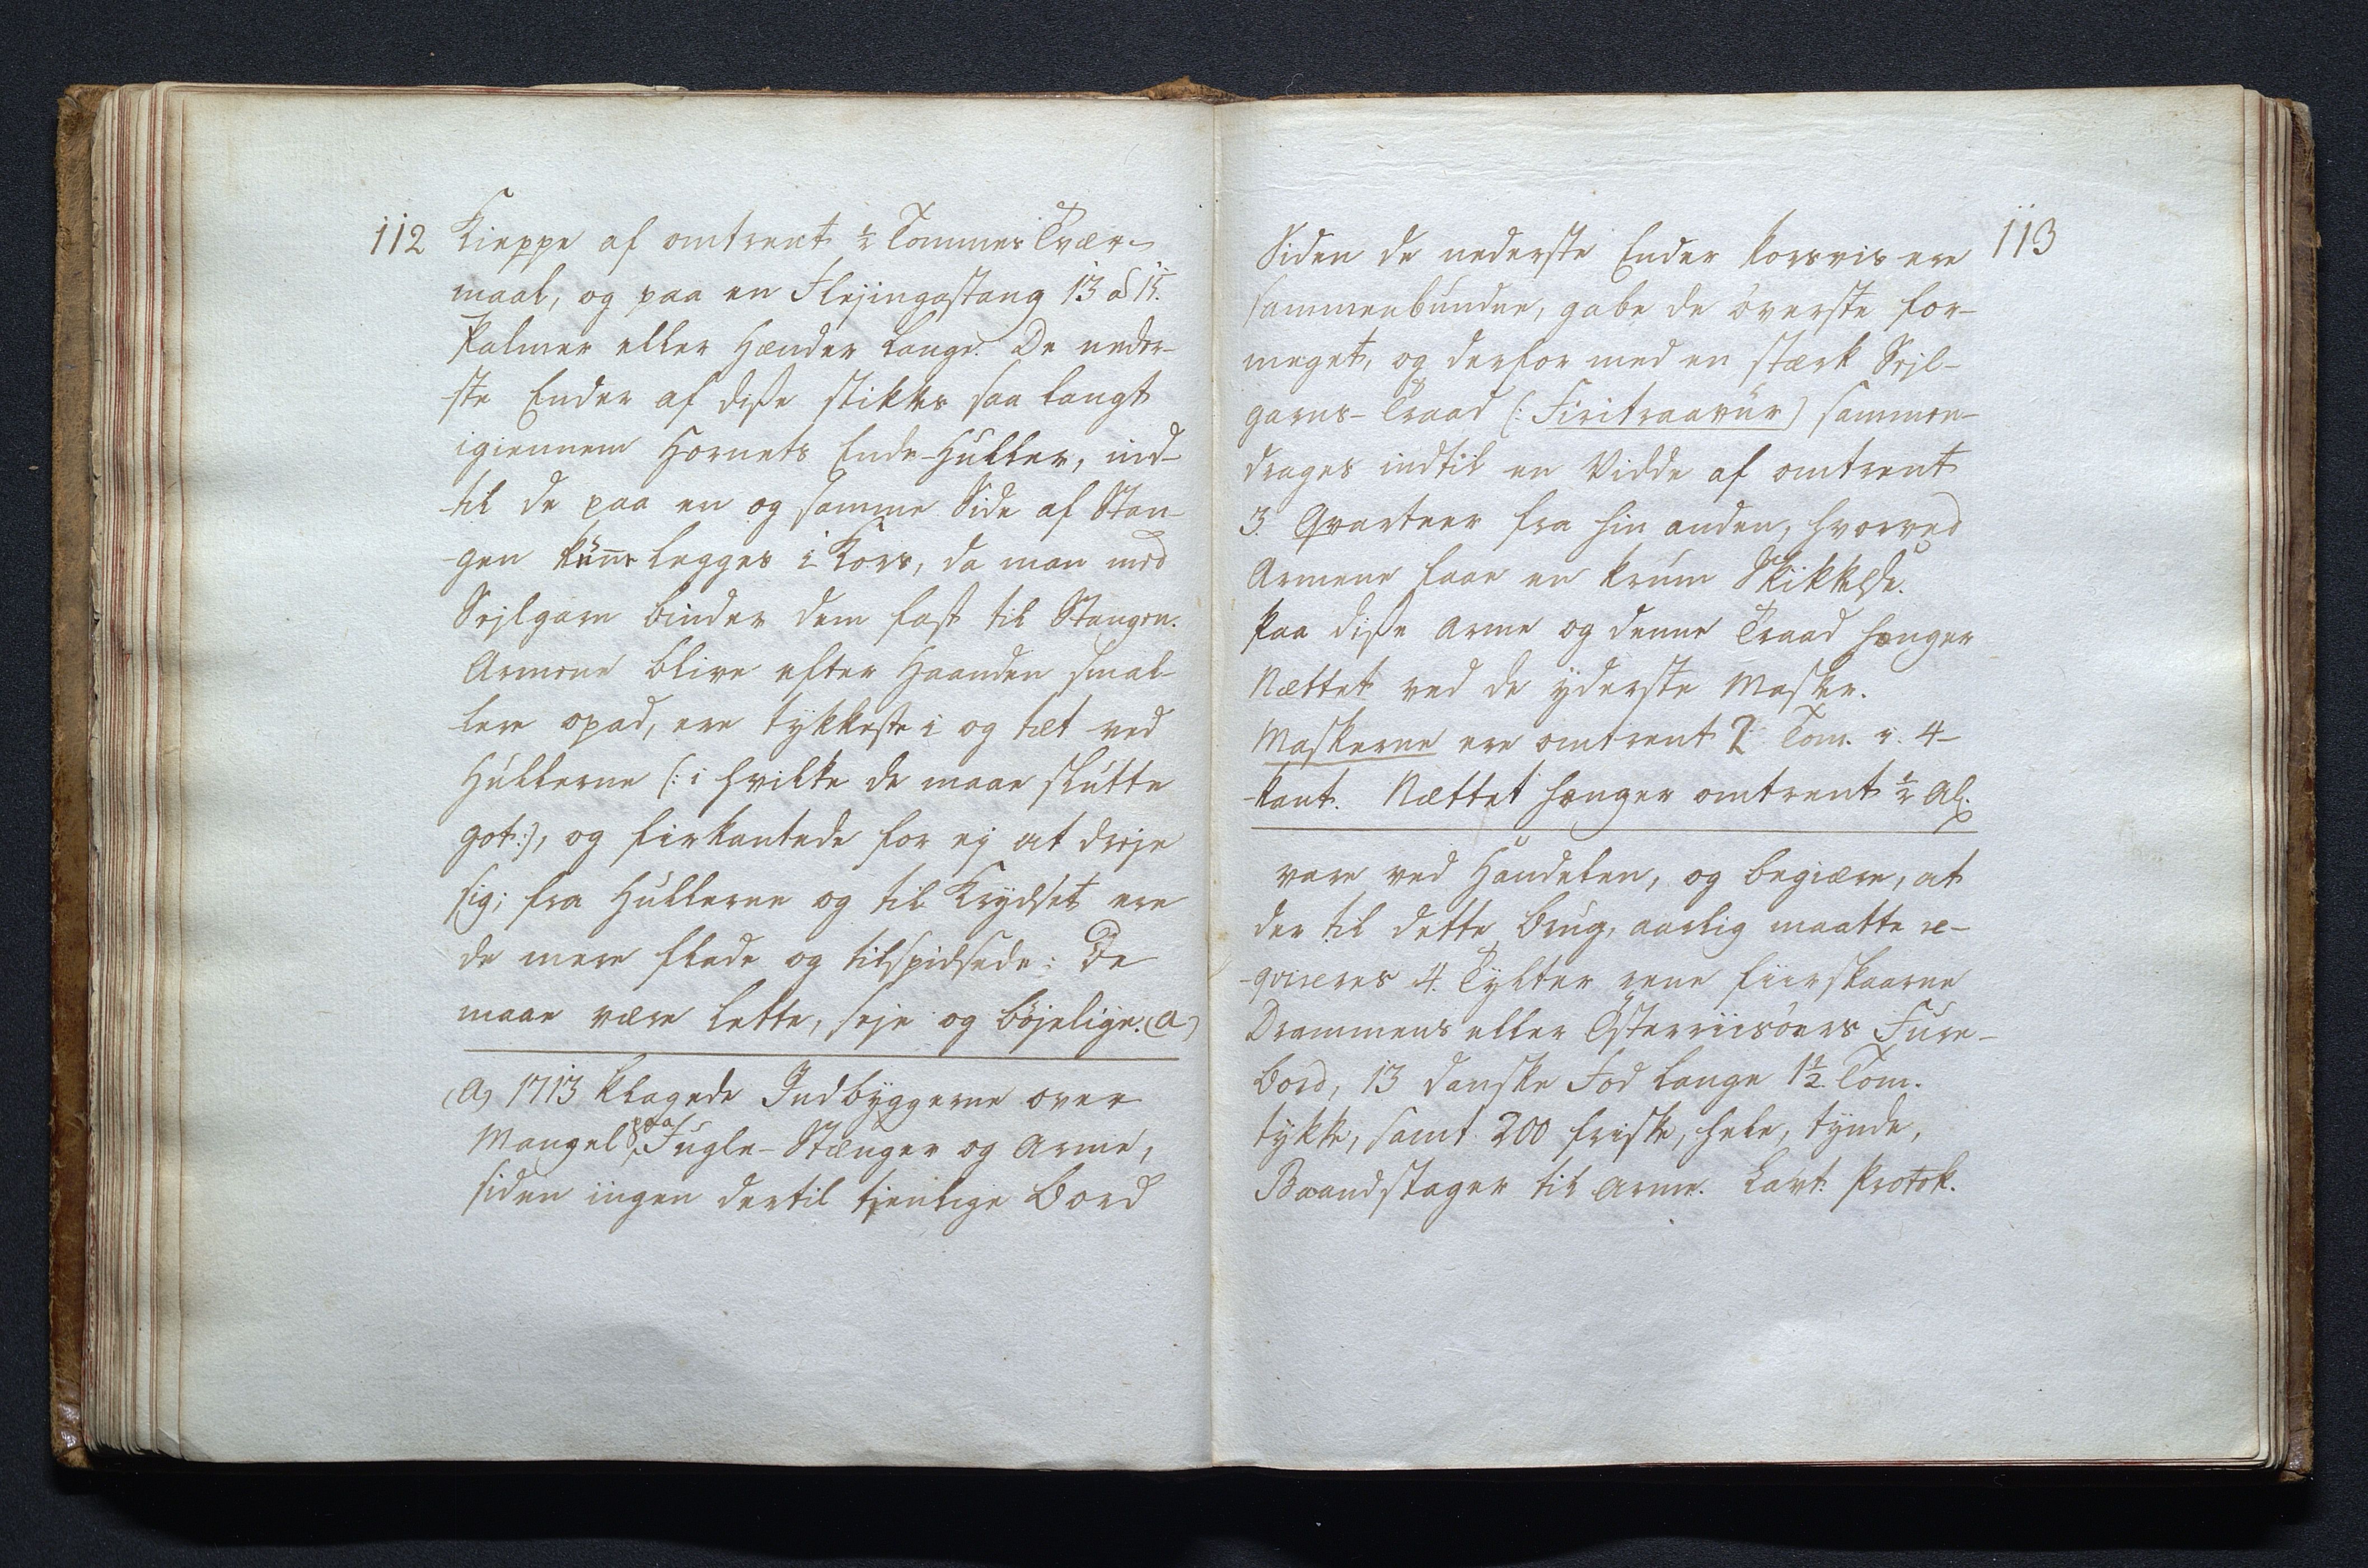 112
Kieppe af omtrent ½ Tommes Tvær-
maal, og paa en Flejingastang 13 a 15.
Palmer eller Hænder lange. De neder-
ste Ender af disse stikkes saa langt
igiennem Hornets Ende-Huller, ind-
til de paa en og samme Side af Stan-
gen kunne legges i Kors, da man med
Sejlgarn binder dem fast til Stangen.
Armene blive efter Haanden smal-
lere opad, ere tykkeste i og tæt ved
Hullerne (: i hvilke de maae slutte
got:), og firkantede for ej at dreje
sig; fra Hullerne og til Krydset ere
de mere flade og tilspidsede: De
maae være lette, seje og böjelige. (a)
(a) 1713 klagede Indbyggerne over
Mangel paa Fugle-Stænger og Arme,
siden ingen dertil tienlige Bord
113
Siden de nederste Ender korsvis ere
sammenbundne, gabe de överste for-
meget, og derfor med en stærk Sejl-
garns-Traad (: Firitraavur) sammen-
drages indtil en Vidde af omtrent
3. Qvarteer fra hin anden, hvorved
Armene faae en krum Skikkelse.
Paa disse Arme og denne Traad hænger
Nættet ved de yderste Masker.
Maskerne ere omtrent 2 Tom. i 4-
kant. Nættet hænger omtrent ½ Al.
vare ved Handelen, og begiære, at
der til dette Brug, aarlig maatte re-
-qvireres 4. Tylter rene fiirskaarne
Drammens eller Österriisöers Fure-
bord, 13 danske Fod lange 1½ Tom.
tykke, samt 200 friske, hele, tynde,
Baandstager til Arme. Lavt: Protok.